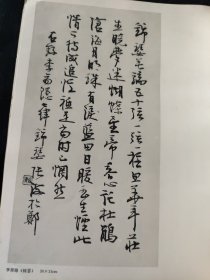 錦瑟無端五十弦一弦一柱思華年莊
生曉夢迷蝴蝶望帝春心託杜鵑
滄海月明珠有淚藍田日暖玉生煙此
情可待成追憶祇是當時已惘然
右錄李商隱七律錦瑟 張海於鄭
李商隐《锦瑟》